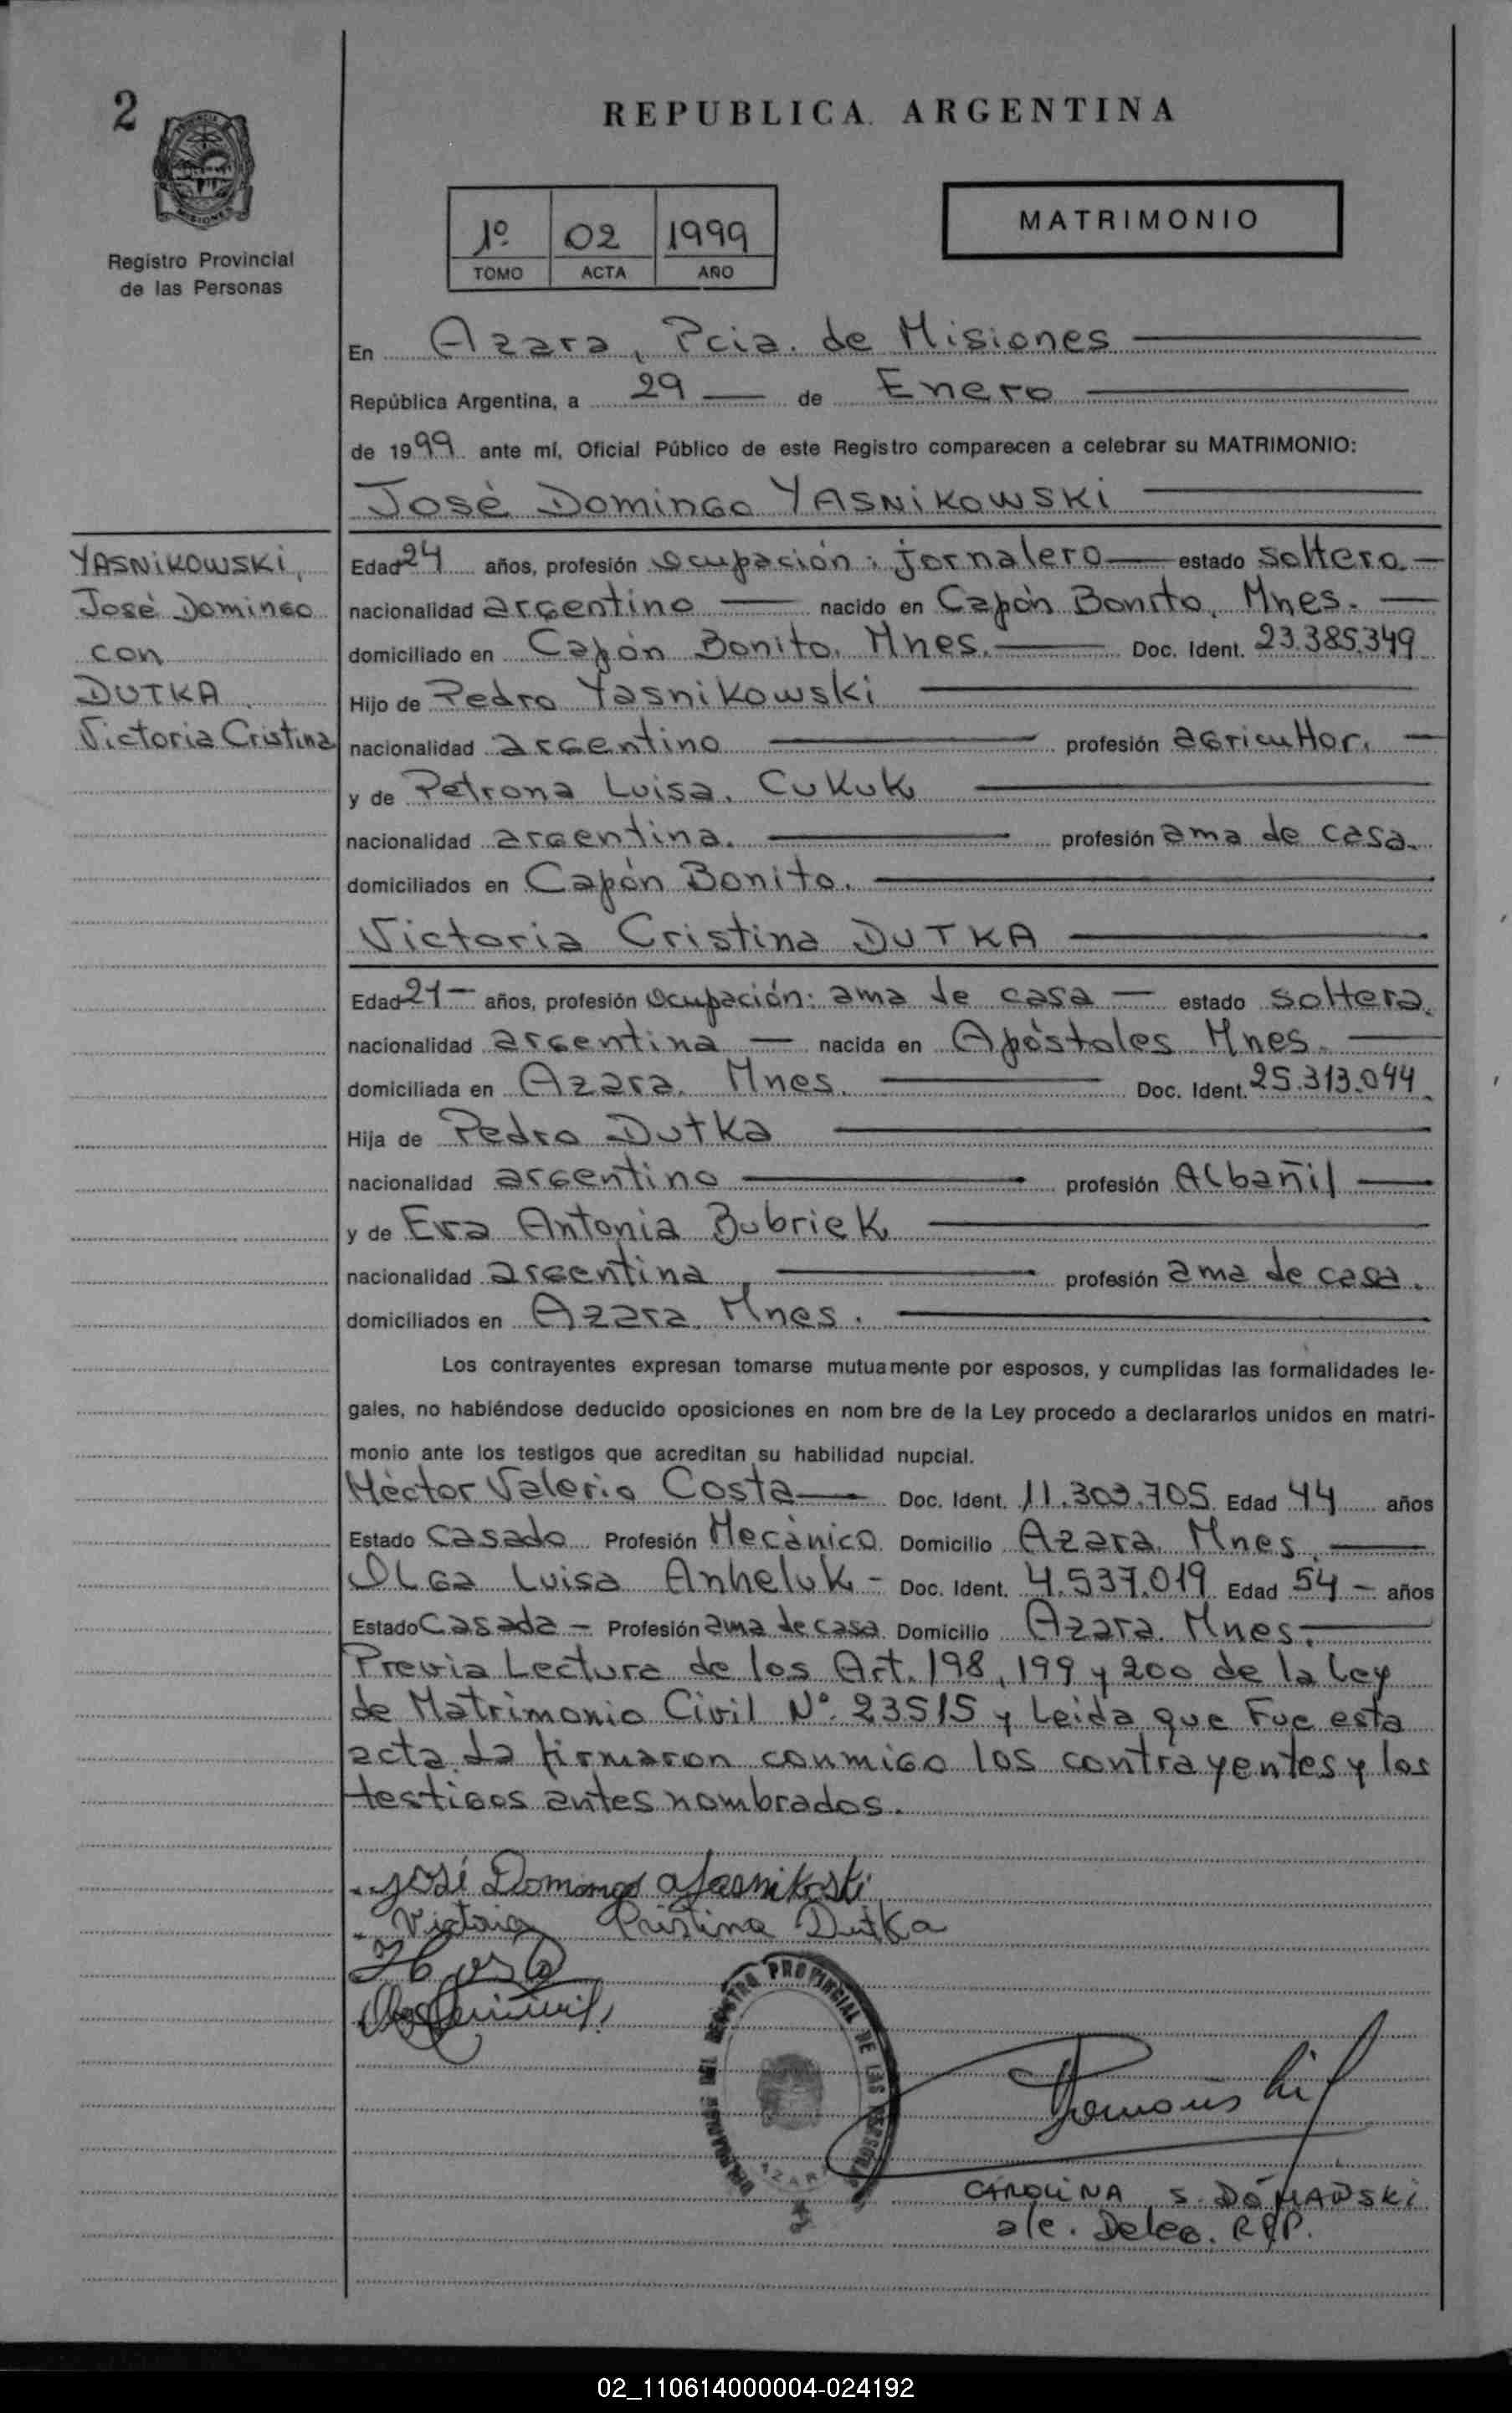 2
REPUBLICA ARGENTINA
Registro Provincial
de las Personas
1º 02 1999
TOMO ACTA AÑO
MATRIMONIO
En Azara, Pcia. de Misiones
República Argentina, a 29 de Enero
de 1999 ante mí, Oficial Público de este Registro comparecen a celebrar su MATRIMONIO:
José Domingo YASNIKOWSKI
YASNIKOWSKI,
José Domingo
con
DUTKA
Victoria Cristina
Edad 24 años, profesión Ocupación: jornalero estado soltero
nacionalidad argentino nacido en Capón Bonito, Mnes.
domiciliado en Capón Bonito. Mnes. Doc. Ident. 23.385.349
Hijo de Pedro Yasnikowski
nacionalidad argentino profesión agricultor.
y de Petrona Luisa. Cukuk
nacionalidad argentina. profesión ama de casa.
domiciliados en Capón Bonito.
Victoria Cristina DUTKA
Edad 21 años, profesión Ocupación: ama de casa estado soltera.
nacionalidad argentina nacida en Apóstoles Mnes.
domiciliada en Azara. Mnes. Doc. Ident. 25.313.044
Hija de Pedro Dutka
nacionalidad argentino profesión Albañil
y de Eva Antonia Bubriek
nacionalidad argentina profesión ama de casa.
domiciliados en Azara. Mnes.
Los contrayentes expresan tomarse mutuamente por esposos, y cumplidas las formalidades le-
gales, no habiéndose deducido oposiciones en nom bre de la Ley procedo a declararlos unidos en matri-
monio ante los testigos que acreditan su habilidad nupcial.
Héctor Valerio Costa Doc. Ident. 11.303.705 Edad 44 años
Estado Casado Profesión Mecánico Domicilio Azara. Mnes.
Olga Luisa Anheluk - Doc. Ident. 4.537.019 Edad 54 - años
Estado Casada - Profesión ama de casa Domicilio Azara. Mnes.
Previa Lectura de los Art. 198, 199 y 200 de la Ley
de Matrimonio Civil Nº 23515 y Leida que Fue esta
acta la firmaron conmigo los contrayentes y los
testigos antes nombrados.
José Domingo Yasnikoski
Victoria Cristina Dutka
REGISTRO PROVINCIAL DE LAS PERSONAS
AZARA
CAROLINA S. DOMAÑSKI
a/c. Deleg. RPP.
02_110614000004-024192